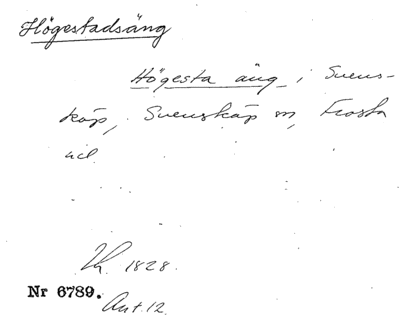 Högestadsäng
Högesta äng i Svens-
köp, Svensköp sn, Frosta
hd.
1828.
Nr 6789.
Ant. 12.